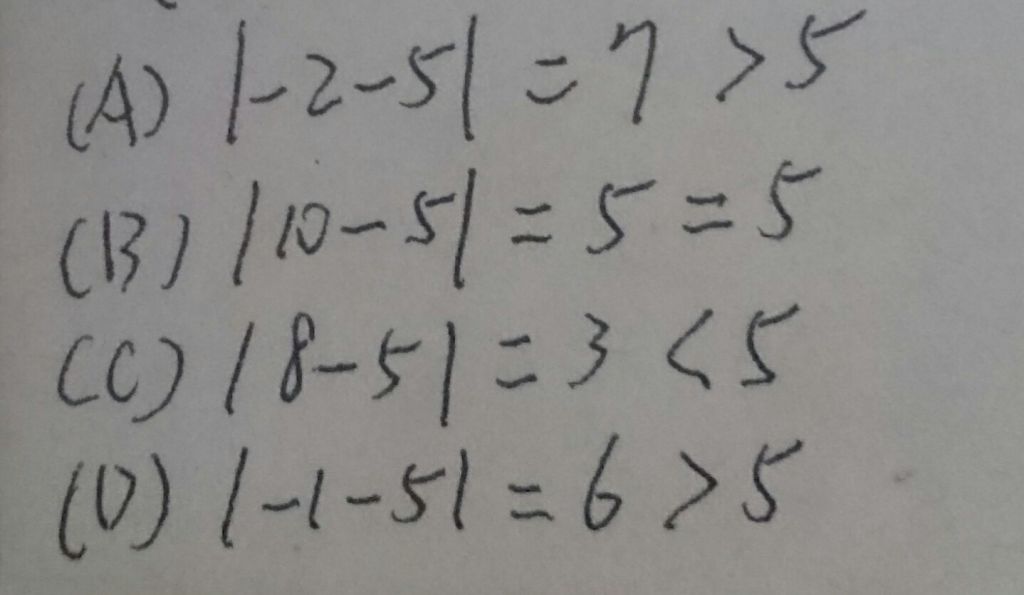 (A) |-2-5| = 7 > 5
(B) |10-5| = 5 = 5
(C) |8-5| = 3 < 5
(D) |-1-5| = 6 > 5